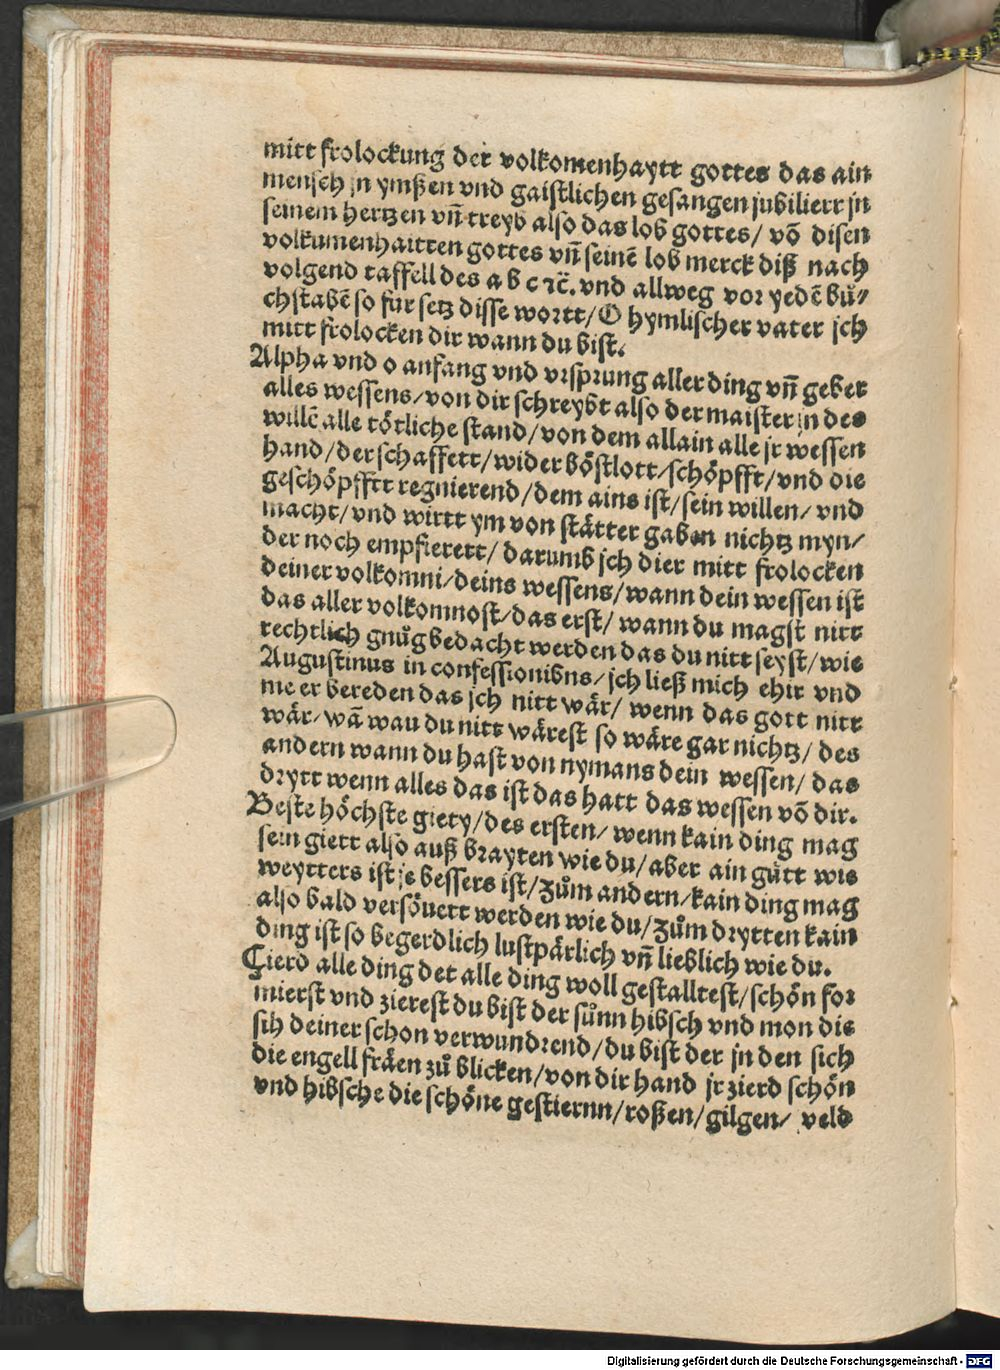 mitt frolockung der volkomenhaytt gottes das ain
mensch jn ymßen vnd gaistlichen gesangen jubiliert jn
seinem hertzen vñ treyb also das lob gottes/ võ disen
volkumenhaitten gottes vñ seinẽ lob merck diß nach
volgend taffell des a b c ꝛc̃. vnd allweg vor yedẽ bů/
chstabẽ so für setz disse wortt/ O hymlischer vater jch
mitt frolocken dir wann du bist.
Alpha vnd o anfang vnd vrsprung aller ding vñ geber
alles wessens/ von dir schreybt also der maister jn des
willẽ alle tötliche stand/ von dem allain alle jr wessen
hand/ der schaffett/ wider böstlott/ schöpfft/ vnd die
geschöpfftt regnierend/ dem ains ist/ sein willen/ vnd
macht/ vnd wirtt ym von stätter gaben nichtz myn/
der noch empfierett/ darumb jch dier mitt frolocken
deiner volkomni/ deins wessens/ wann dein wessen ist
das aller volkomnost/ das erst/ wann du magst nitt
rechtlich gnůg bedacht werden das du nitt seyst/ wie
Augustinus in confessionibns/ jch ließ mich ehir vnd
me er bereden das jch nitt wär/ wenn das gott nitt
wär/ wã wau du nitt wärest so wäre gar nichtz/ des
andern wann du hast von nymans dein wessen/ das
drytt wenn alles das ist das hatt das wessen võ dir.
Beste höchste giety/ des ersten/ wenn kain ding mag
sein giett also auß brayten wie du/ aber ain gůtt wie
weytters ist je bessers ist/ zům andern/ kain ding mag
also bald versöuett werden wie du/ zům drytten kain
ding ist so begerdlich lustpärlich vñ lieblich wie du.
Cierd alle ding det alle ding woll gestalltest/ schön for
mierst vnd zierest du bist der sůnn hibsch vnd mon die
sih deiner schon verwundrend/ du bist der jn den sich
die engell fräen zů blicken/ von dir hand jr zierd schön
vnd hibsche die schöne gestiernn/ roßen/ gilgen/ veld
Digitalisierung gefördert durch die Deutsche Forschungsgemeinschaft - DFG